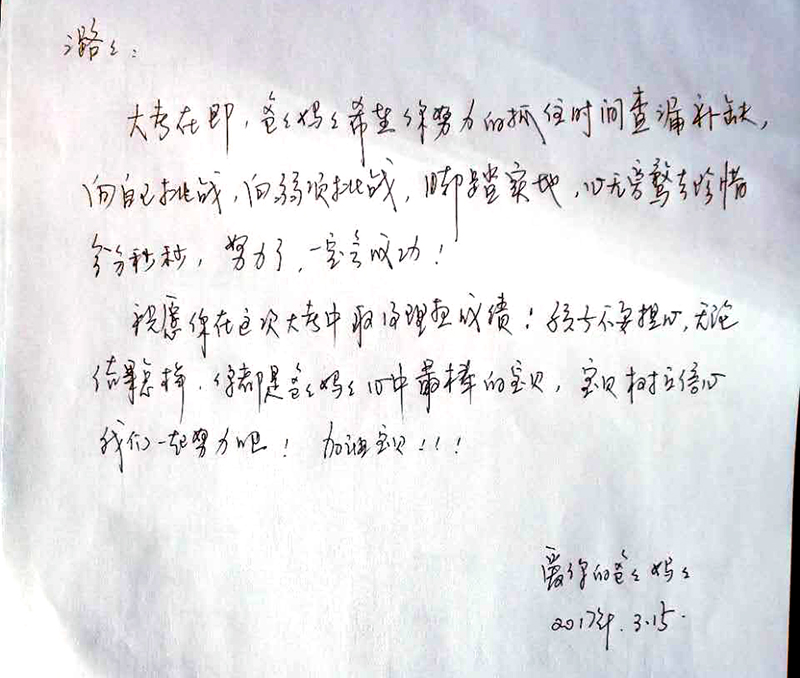 潞々：
大考在即，爸々妈々希望你努力的抓住时间查漏补缺，
向自己挑战，向弱项挑战，脚踏实地，心无旁鹜去珍惜
分分秒秒，努力了，一定会成功！
祝愿你在这次大考中取得理想成绩！孩子不要担心，无论
结果怎样，你都是爸々妈々心中最棒的宝贝，宝贝树立信心
我们一起努力吧！加油宝贝！！！
爱你的爸々妈々
2017年.3.15.